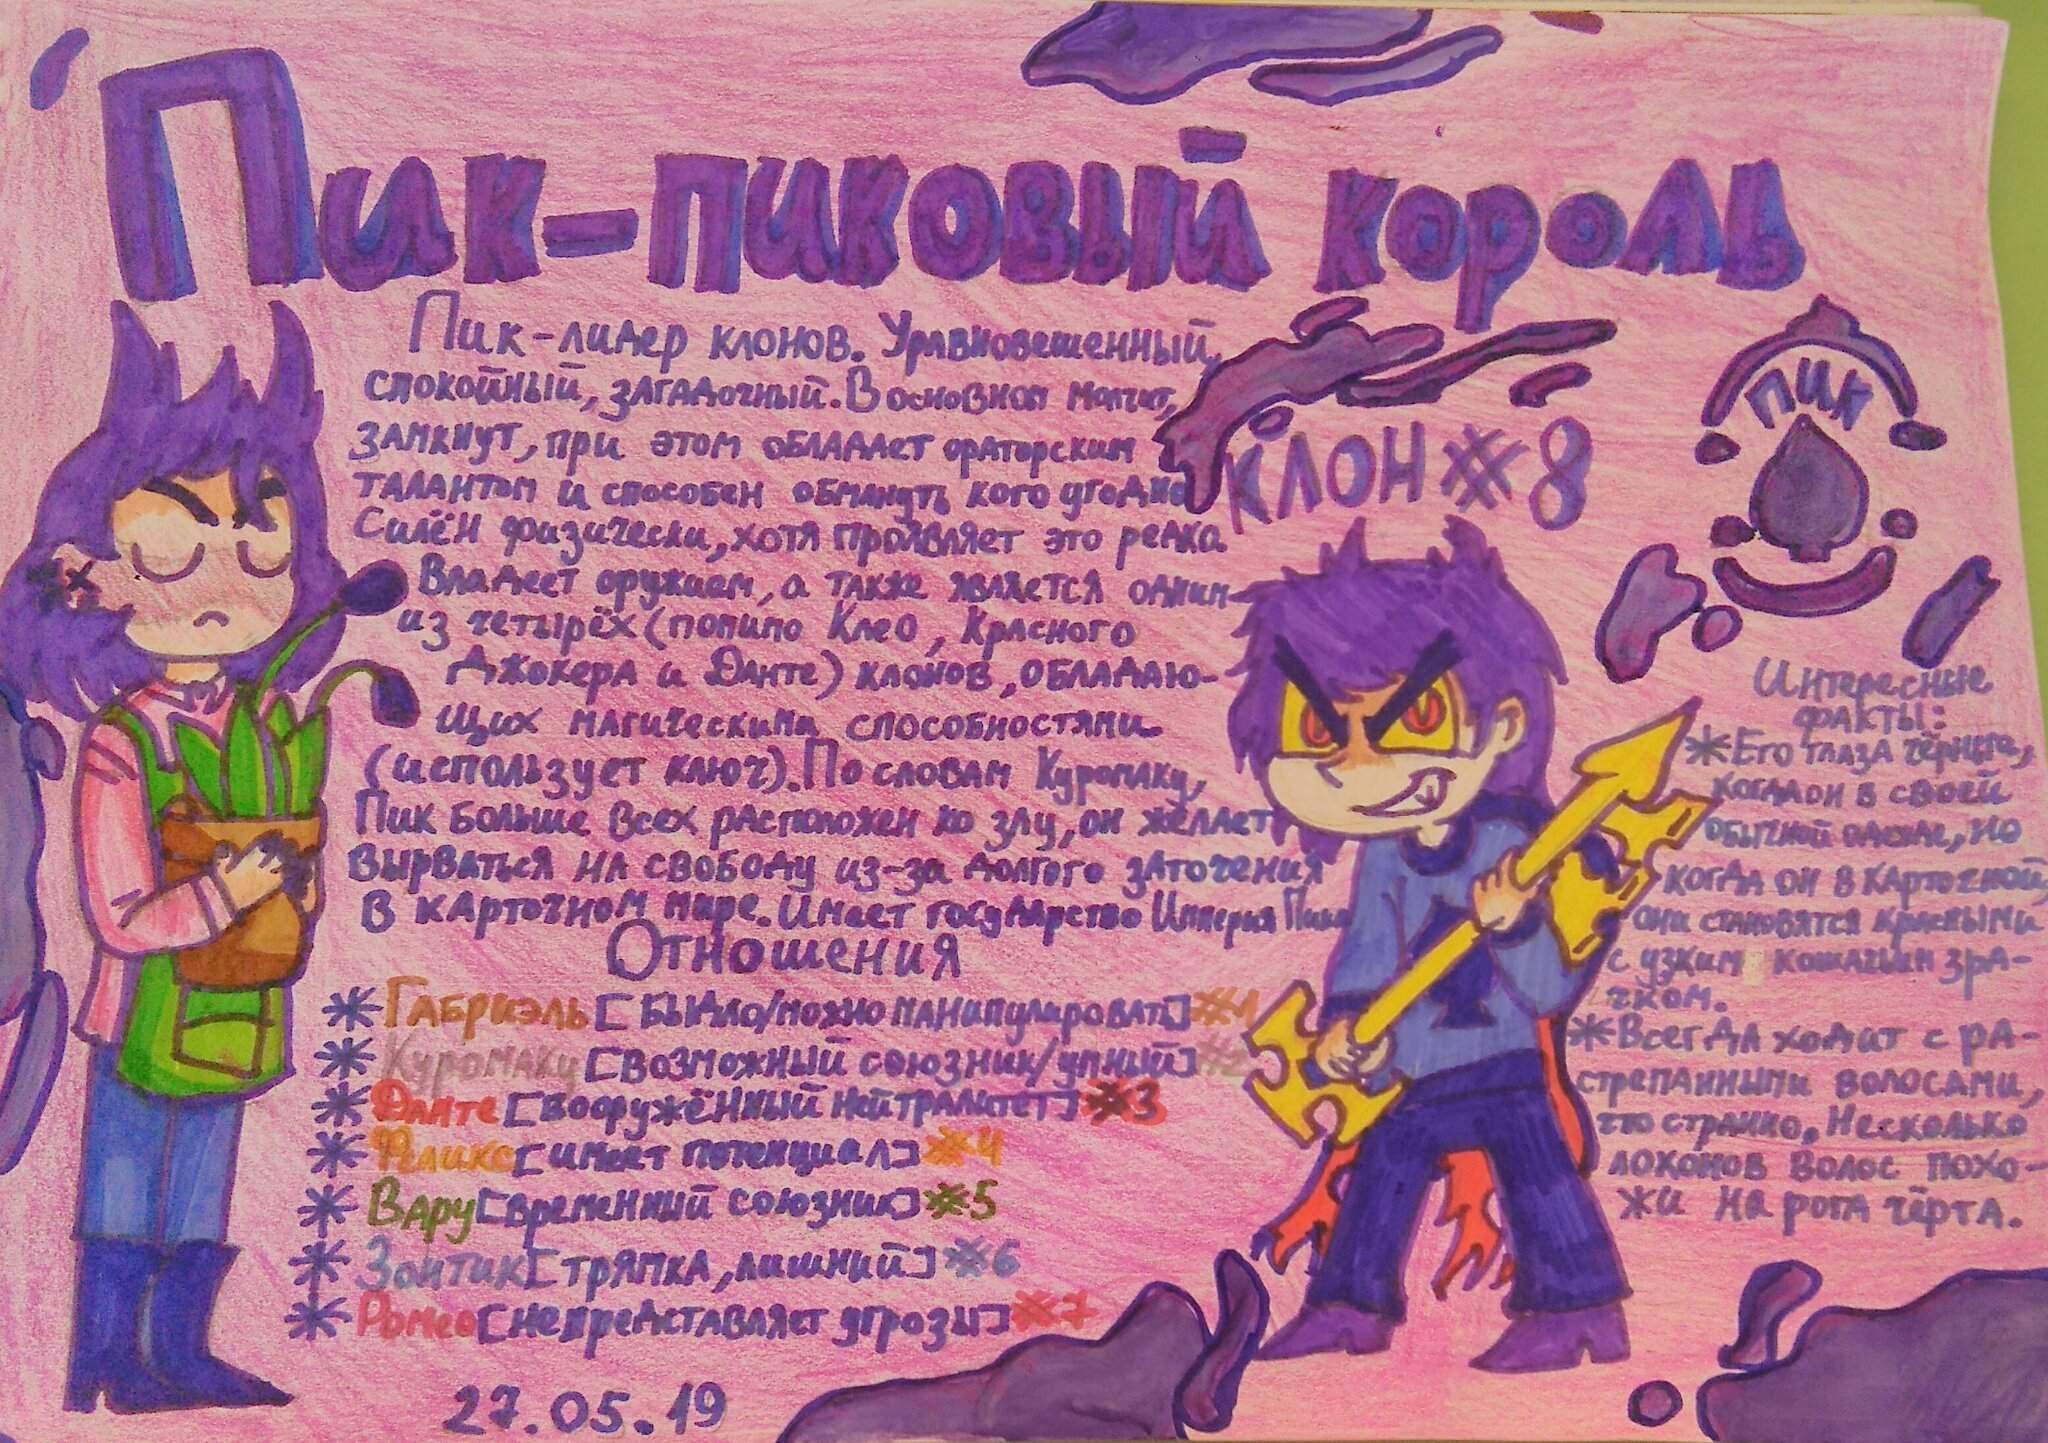 Пик-пиковый король
Пик-лидер клонов. Уравновешенный,
спокойный, загадочный. В основном молчит,
замкнут, при этом обладает ораторским
талантом и способен обмануть кого угодно
Силён физически, хотя проявляет это редко.
Владеет оружием, а также является одним
из четырёх (помимо Клео, Красного
Джокера и Данте) клонов, обладаю-
щих магическими способностями.
(использует ключ). По словам Куромаку,
Пик больше всех расположен ко злу, он желает
вырваться на свободу из-за долгого заточения
в карточном мире. Имеет государство Империя Пика
Отношения
*Габриэль [быдло/можно манипулировать] #1
*Куромаку [возможный союзник/умный] #2
*Данте [вооружённый нейтралитет] #3
*Феликс [имеет потенциал] #4
*Вару [временный союзник] #5
*Зонтик [тряпка, лишний] #6
*Ромео [не представляет угрозы] #7
27.05.19
клон #8
ПИК
Интересные
факты:
*Его глаза чёрные,
когда он в своей
обычной одежде, но
когда он в карточной,
они становятся красными
с узким кошачьим зра-
чком.
*Всегда ходит с ра-
стрепанными волосами,
что странно. Несколько
локонов волос похо-
жи на рога чёрта.